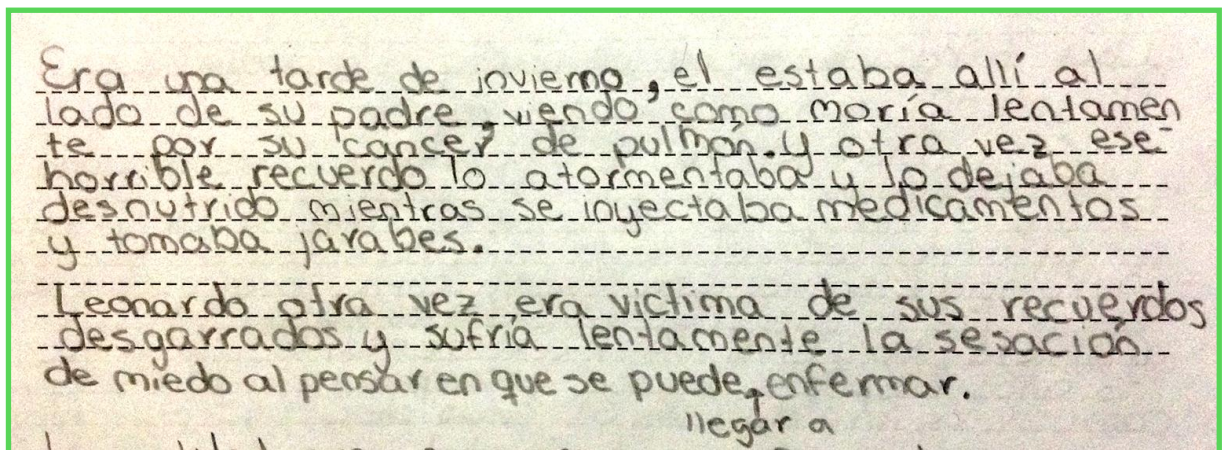 Era una tarde de invierno, el estaba allí al
lado de su padre, viendo como moría lentamen
te por su cancer de pulmón. y otra vez ese
horrible recuerdo lo atormentaba y lo dejaba
desnutrido mientras se inyectaba medicamentos
y tomaba jarabes.
Leonardo otra vez era victima de sus recuerdos
desgarrados y sufría lentamente la sesación
de miedo al pensar en que se puede enfermar.
llegar a